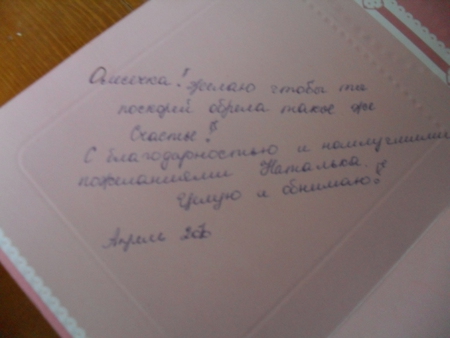 Олисечка! Желаю чтобы ты
поскорей обрела такое же
Счастье!
С благодарностью и наилучшими
пожеланиями Наталька.
Целую и обнимаю!
Апрель